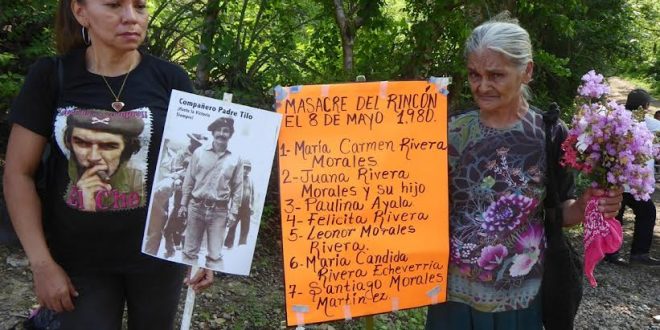 Compañero Padre Tilo
¡Hasta la Victoria
Siempre!
El Che
MASACRE DEL RINCÓN
EL 8 DE MAYO 1980.
1- María Carmen Rivera
Morales
2- Juana Rivera
Morales y su hijo
3- Paulina Ayala
4- Felicita Rivera
5- Leonor Morales
Rivera.
6- María Candida
Rivera Echeverría
7- Santiago Morales
Martínez.